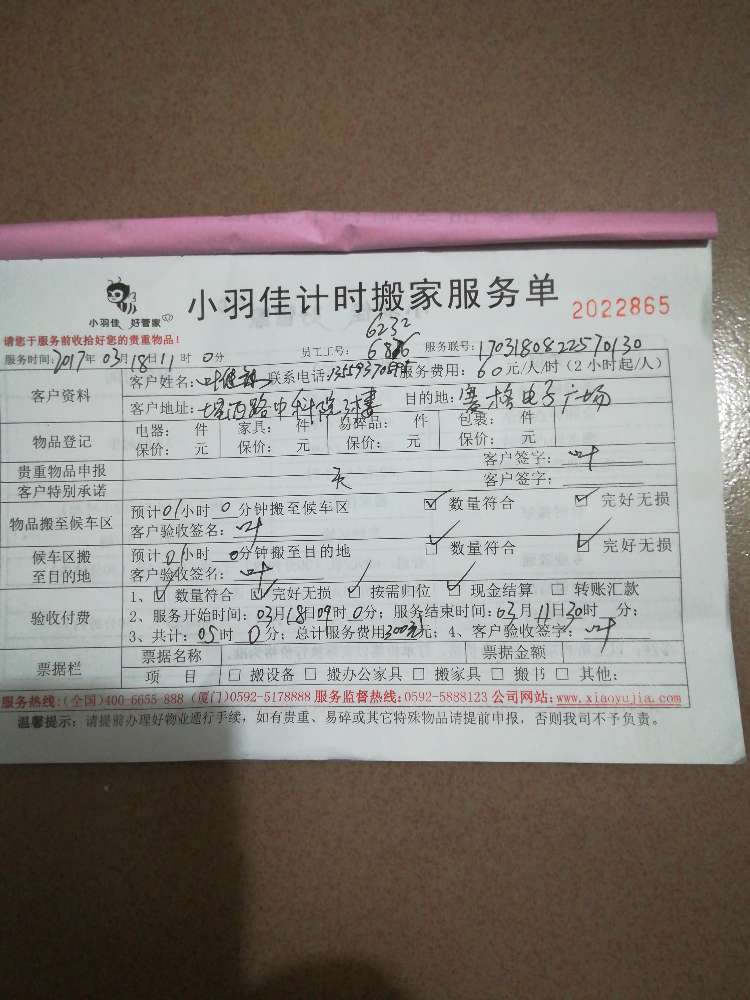 小羽佳 好管家
小羽佳计时搬家服务单 2022865
请您于服务前收拾好您的贵重物品!
6232
服务时间:2017年03月18日11时0分 员工工号: 服务联号:1703180822570130
客户资料 客户姓名:叶 联系电话: 服务费用:60元/人/时(2小时起/人)
客户地址: 西路中科院3楼 目的地:赛格电子广场
物品登记 电器: 件 家具: 件 易碎品: 件 包裹: 件
保价: 元 保价: 元 保价: 元 保价: 元
贵重物品申报 无 客户签字:叶
客户特别承诺 客户签字:
物品搬至候车区 预计01小时0分钟搬至候车区 ☑ 数量符合 ☑ 完好无损
客户验收签名:叶
候车区搬至目的地 预计01小时0分钟搬至目的地 ☑ 数量符合 ☑ 完好无损
客户验收签名:叶
验收付费 1、☑ 数量符合 ☑ 完好无损 ☑ 按需归位 ☑ 现金结算 □ 转账汇款
2、服务开始时间:03月18日09时0分; 服务结束时间:03月11日30时 分;
3、共计:05时0分; 总计服务费用300元元; 4、客户验收签字:叶
票据栏 票据名称 票据金额
项 目 □ 搬设备 □ 搬办公家具 □ 搬家具 □ 搬书 □ 其他:
服务热线:(全国)400-6655-888 (厦门)0592-5178888 服务监督热线:0592-5888123 公司网站:www.xiaoyujia.com
温馨提示: 请提前办理好物业通行手续,如有贵重、易碎或其它特殊物品请提前申报,否则我司不予负责。